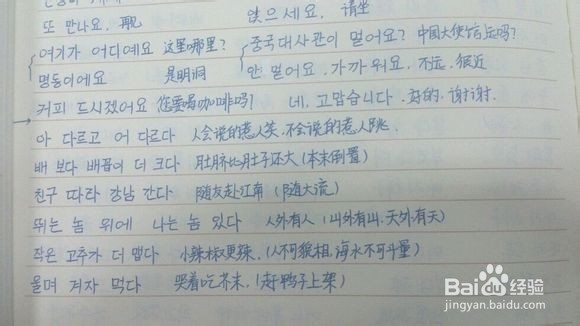 또 만나요. 再见 앉으세요. 请坐
여기가 어디예요 这里哪里? 중국대사관이 멀어요? 中国大使馆远吗?
명동이에요 是明洞 안 멀어요. 가까워요. 不远. 很近
커피 드시겠어요 您要喝咖啡吗! 네. 고맙습니다. 好的. 谢谢.
아 다르고 어 다르다 人会说的惹人笑, 不会说的惹人跳.
배 보다 배꼽이 더 크다 肚脐比肚子还大 (本末倒置)
친구 따라 강남 간다 随友赴江南 (随大流)
뛰는 놈 위에 나는 놈 있다 人外有人 (山外有山, 天外有天)
작은 고추가 더 맵다 小辣椒更辣. (人不可貌相, 海水不可斗量)
울며 겨자 먹다 哭着吃芥末. (赶鸭子上架)
Baidu 经验
jingyan.baidu.com